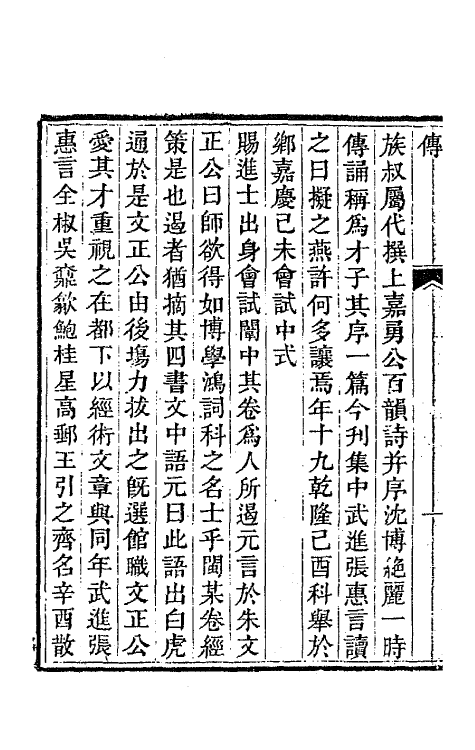 傳
族叔屬代撰上嘉勇公百韻詩并序沈博絶麗一時
傳誦稱爲才子其序一篇今刊集中武進張惠言讀
之曰擬之燕許何多讓焉年十九乾隆己酉科舉於
鄉嘉慶己未會試中式
賜進士出身會試闈中其卷爲人所遏元言於朱文
正公曰師欲得如博學鴻詞科之名士乎閩某卷經
策是也遏者猶摘其四書文中語元曰此語出白虎
通於是文正公由後塲力拔出之旣選館職文正公
愛其才重視之在都下以經術文章與同年武進張
惠言全椒吳鼒歙鮑桂星高郵王引之齊名辛酉散